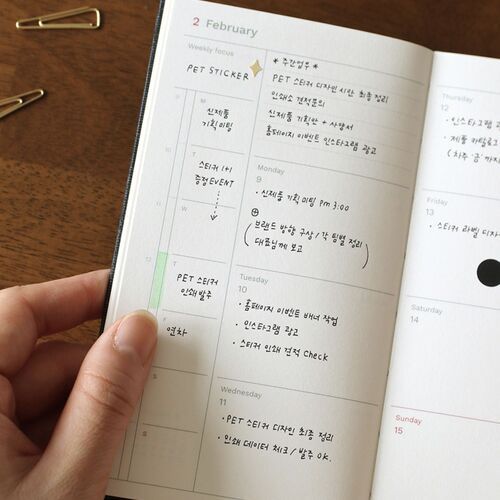 2 February
Weekly focus
PET STICKER
* 주간업무 *
PET 스티커 디자인 시안 최종 정리
인쇄소 견적문의
신제품 기획안 + 사양서
홈페이지 이벤트 인스타그램 광고
9
M
신제품
기획미팅
10
T
스티커 1+1
증정 EVENT
11
W
12
T
PET 스티커
인쇄 발주
F
연차
S
S
Monday
9
· 신제품 기획 미팅 PM 3:00
⊕
(브랜드 방향 구상 / 각 팀별 정리
대표님께 보고)
Tuesday
10
· 홈페이지 이벤트 배너 작업
· 인스타그램 광고
· 스티커 인쇄 견적 Check
Wednesday
11
· PET 스티커 디자인 최종 정리
· 인쇄 데이터 체크 / 발주 OK.
Thursday
12
· 인스타그램
· 제품 카탈로그
(차주 금 까지
Friday
13
· 스티커 라벨 디자
Saturday
14
Sunday
15